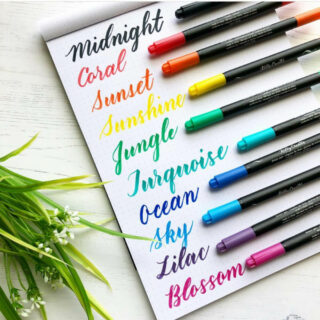 Midnight
Coral
Sunset
Sunshine
Jungle
Turquoise
Ocean
Sky
Lilac
Blossom